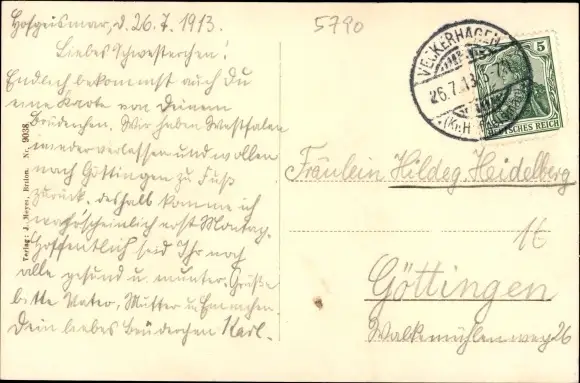 Hofgeismar, d. 26.7.1913.
Liebes Schwesterchen!
Endlich bekommst auch Du
eine Karte von Deinem
Brüderchen. Wir haben Westfalen
wieder verlassen und wollen
nach Göttingen zu Fuß
zurück. deshalb komme ich
wahrscheinlich erst Montag.
Hoffentlich seid Ihr noch
alle gesund u. munter. Grüße
bitte Vater, Mutter u.
Dein liebes Brüderchen Karl.
Verlag: J. Meyer, Nr. 9038
5790
VECKERHAGEN
26.7.13
5
DEUTSCHES REICH
Fräulein Hildeg. Heidelberg
Göttingen
Walkemühlenweg 26